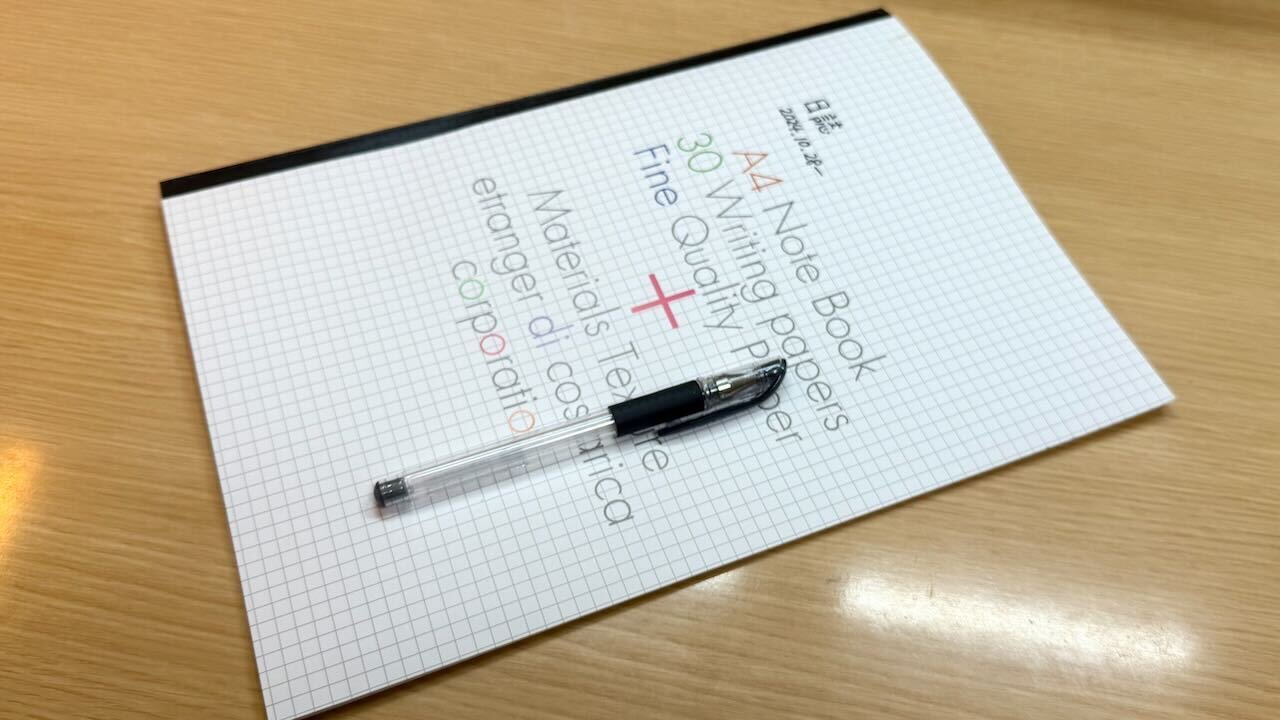 日誌
2024.10.28~
A4 Note Book
30 Writing papers
Fine Quality Paper
+
Materials
etranger di cos
corporatio